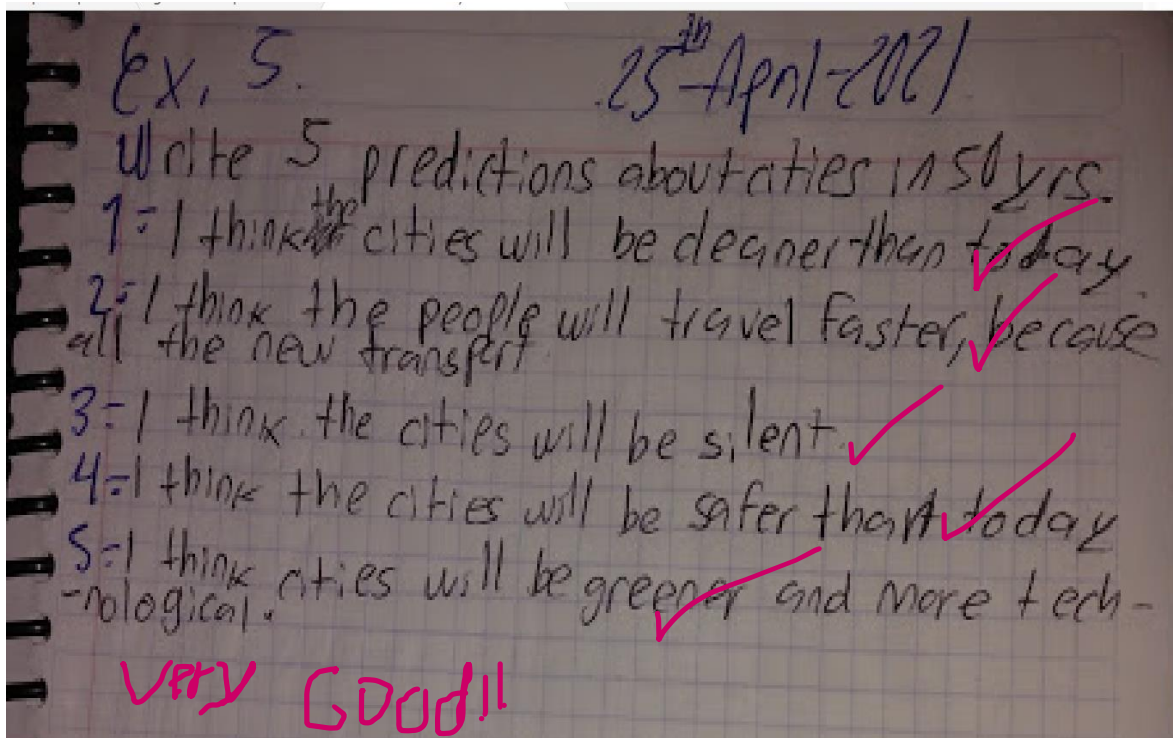 Ex, 5. 25th-April-2021
Write 5 predictions about cities in 50 yrs.
1=I think the cities will be cleaner than today.
2=I think the people will travel faster, because
all the new transport
3=I think the cities will be silent.
4=I think the cities will be safer than today
5=I think cities will be greener and more tech-
-nological.
Very Good!!